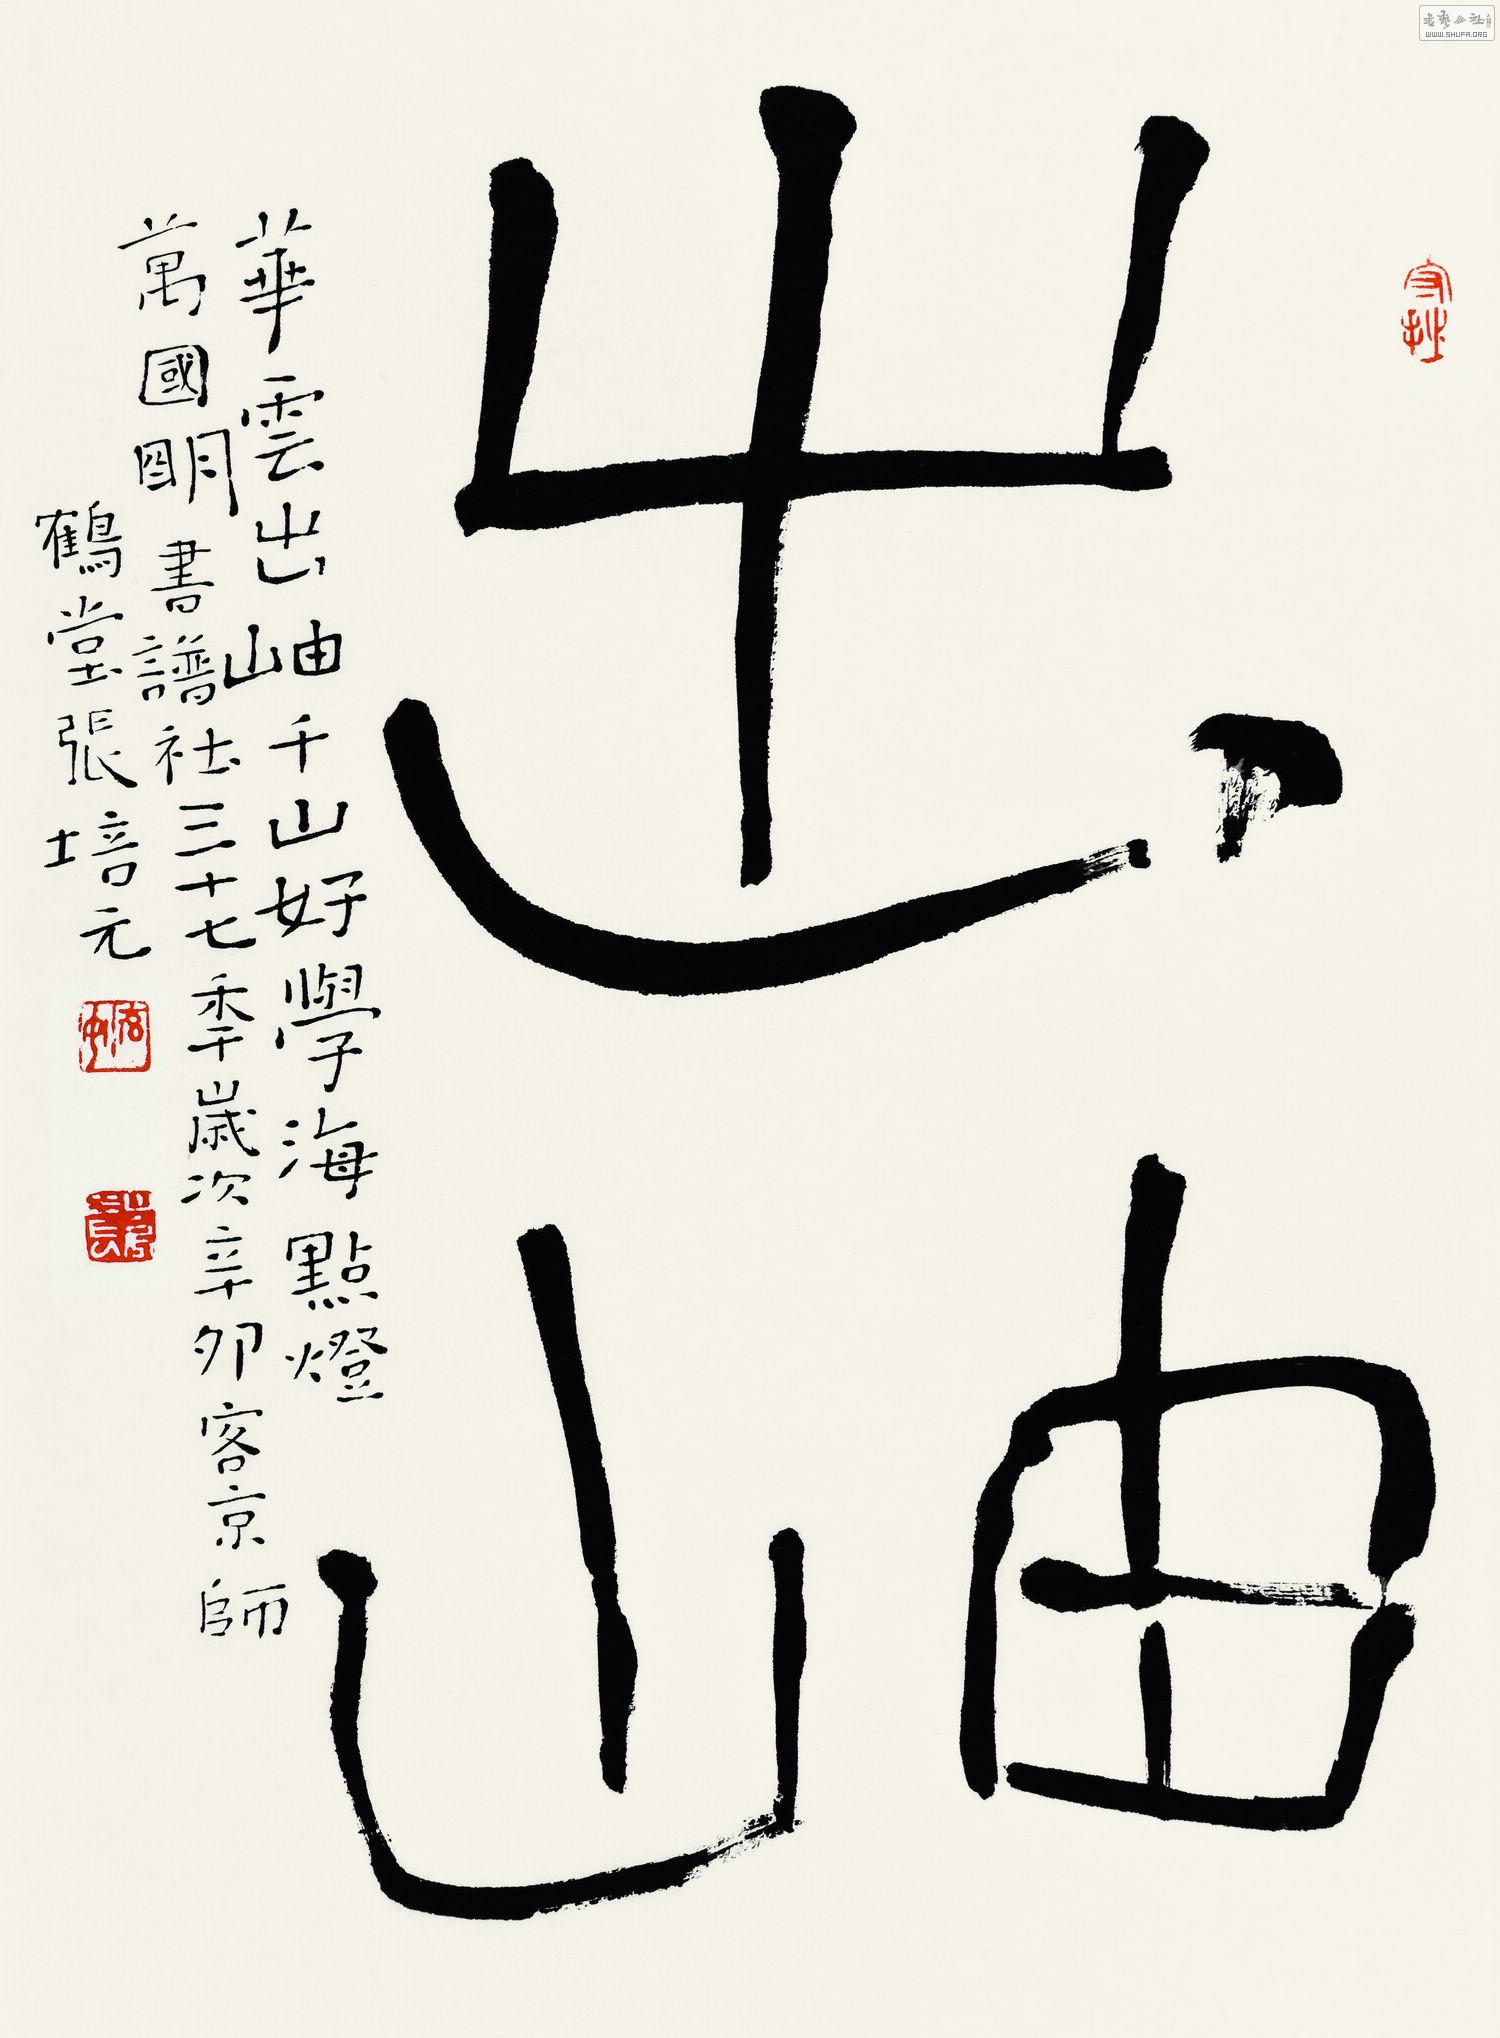 出岫
華雲出岫千山好學海點燈
萬國明書譜社三十七季歲次辛卯客京師
鶴堂張培元
守拙
書藝公社
WWW.SHUFA.ORG